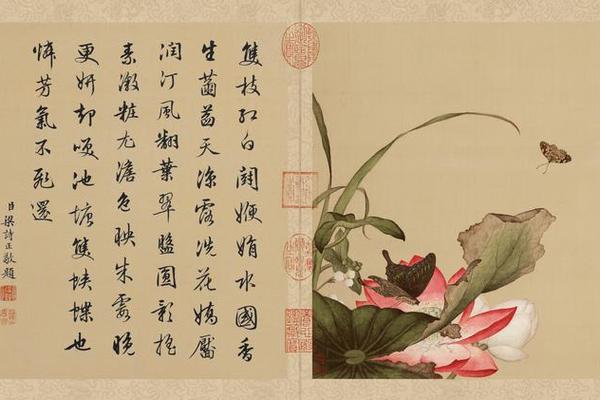 雙枝紅白鬪嬋娟水國香
生菡萏天涼露洗花嬌靨
潤汀風翻葉翠盤圓影搖
素瀲粧尤澹色映朱霞晚
更妍却咲池塘雙蛺蝶也
憐芳氣不飛還
臣梁詩正敬題